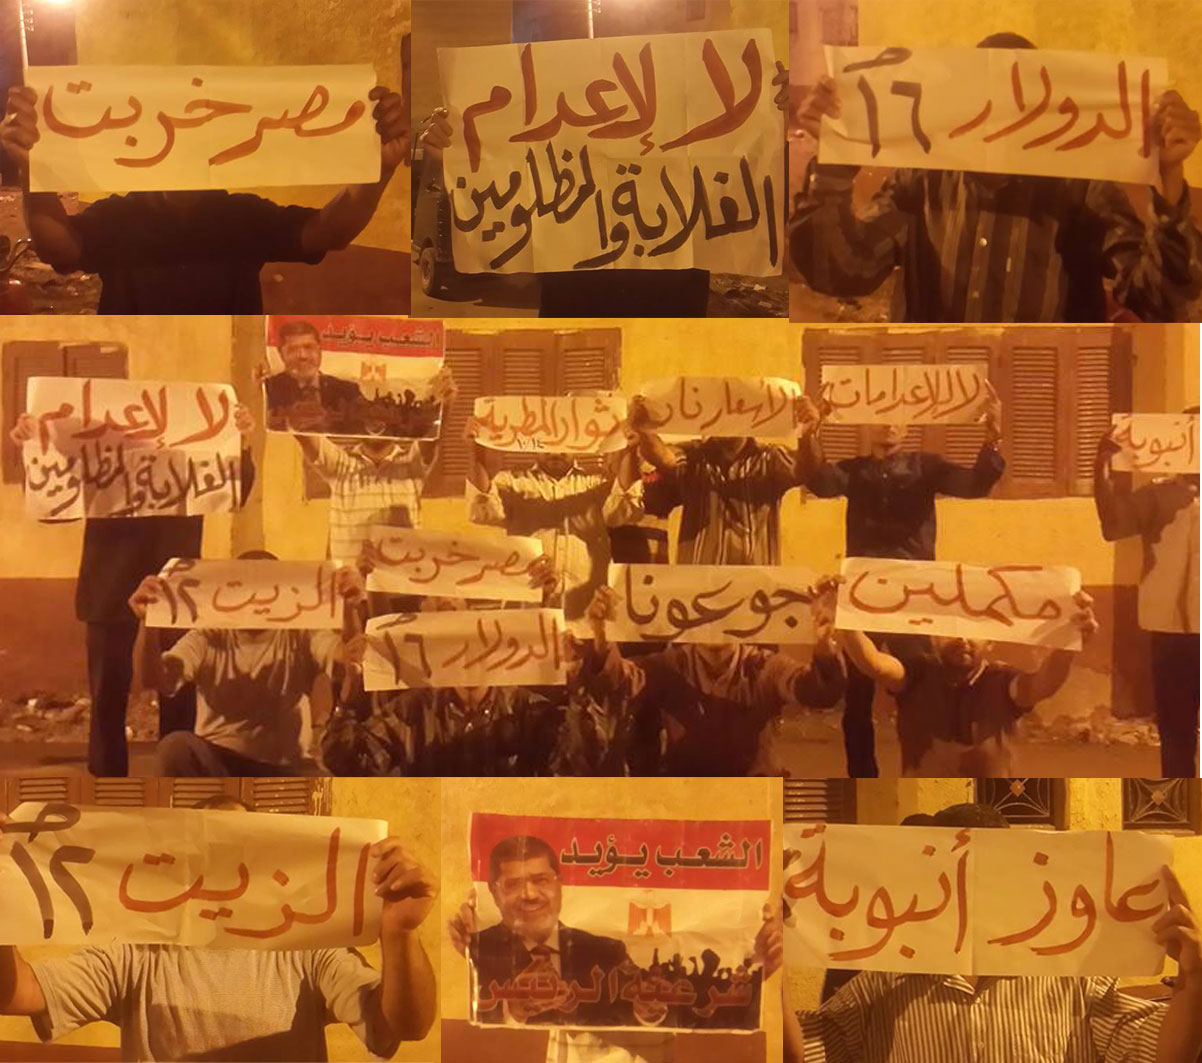 مصر خربت
لا لإعدام
الغلابة والمظلومين
الدولار ١٦ ج
الشعب يؤيد
لا لإعدام
الغلابة والمظلومين
ثوار المطرية
الاسعار نار
لا للإعدامات
أنبوبة
مصر خربت
الزيت ١٢ ج
جوعونا
مكملين
الدولار ١٦ ج
الزيت ١٢ ج
الشعب يؤيد
شرعية الرئيس
عاوز أنبوبة